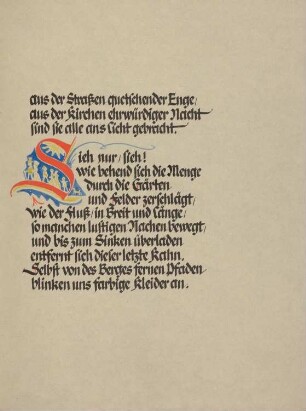 aus der Straßen quetschender Enge/
aus der Kirchen ehrwürdiger Nacht
sind sie alle ans Licht gebracht.
Sieh nur/sieh!
wie behend sich die Menge
durch die Gärten
und Felder zerschlägt/
wie der Fluß/in Breit und Länge/
so manchen lustigen Nachen bewegt/
und bis zum Sinken überladen
entfernt sich dieser letzte Kahn.
Selbst von des Berges fernen Pfaden
blinken uns farbige Kleider an.